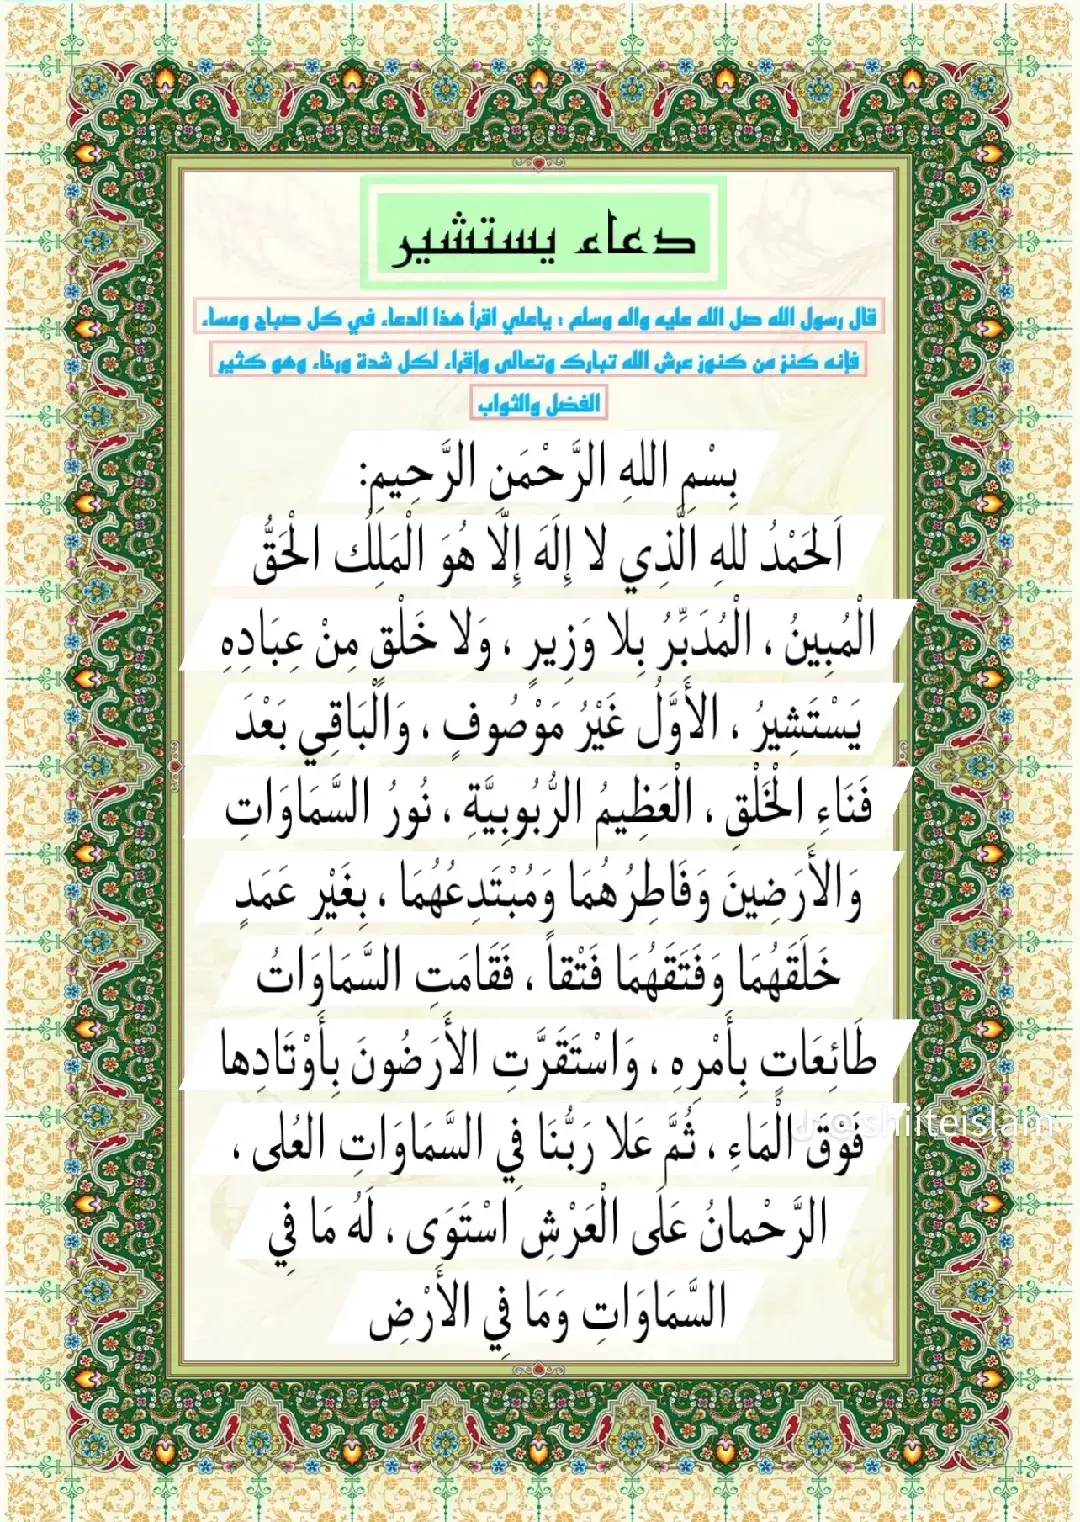 دعاء يستشير
قال رسول الله صل الله عليه واله وسلم : ياعلي اقرأ هذا الدعاء في كل صباح ومساء
فإنه كنز من كنوز عرش الله تبارك وتعالى وإقراء لكل شدة ورخاء وهو كثير
الفضل والثواب
بِسْمِ اللهِ الرَّحْمَنِ الرَّحِيمِ:
اَلْحَمْدُ للهِ الَّذِي لا إِلَهَ إِلَّا هُوَ الْمَلِكُ الْحَقُّ
الْمُبِينُ ، الْمُدَبِّرُ بِلا وَزِيرٍ ، وَلا خَلْقٍ مِنْ عِبَادِهِ
يَسْتَشِيرُ ، الأَوَّلُ غَيْرُ مَوْصُوفٍ ، وَالْبَاقِي بَعْدَ
فَنَاءِ الْخَلْقِ ، الْعَظِيمُ الرُّبُوبِيَّةِ ، نُورُ السَّمَاوَاتِ
وَالأَرَضِينَ وَفَاطِرُهُمَا وَمُبْتَدِعُهُمَا ، بِغَيْرِ عَمَدٍ
خَلَقَهُمَا وَفَتَقَهُمَا فَتْقاً ، فَقَامَتِ السَّمَاوَاتُ
طَائِعَاتٍ بِأَمْرِهِ ، وَاسْتَقَرَّتِ الأَرَضُونَ بِأَوْتَادِها
فَوَقَ الْمَاءِ ، ثُمَّ عَلا رَبُّنَا فِي السَّمَاوَاتِ العُلى ،
الرَّحْمانُ عَلَى الْعَرْشِ اسْتَوَى ، لَهُ مَا فِي
السَّمَاوَاتِ وَمَا فِي الأَرْضِ
@shiiteislam